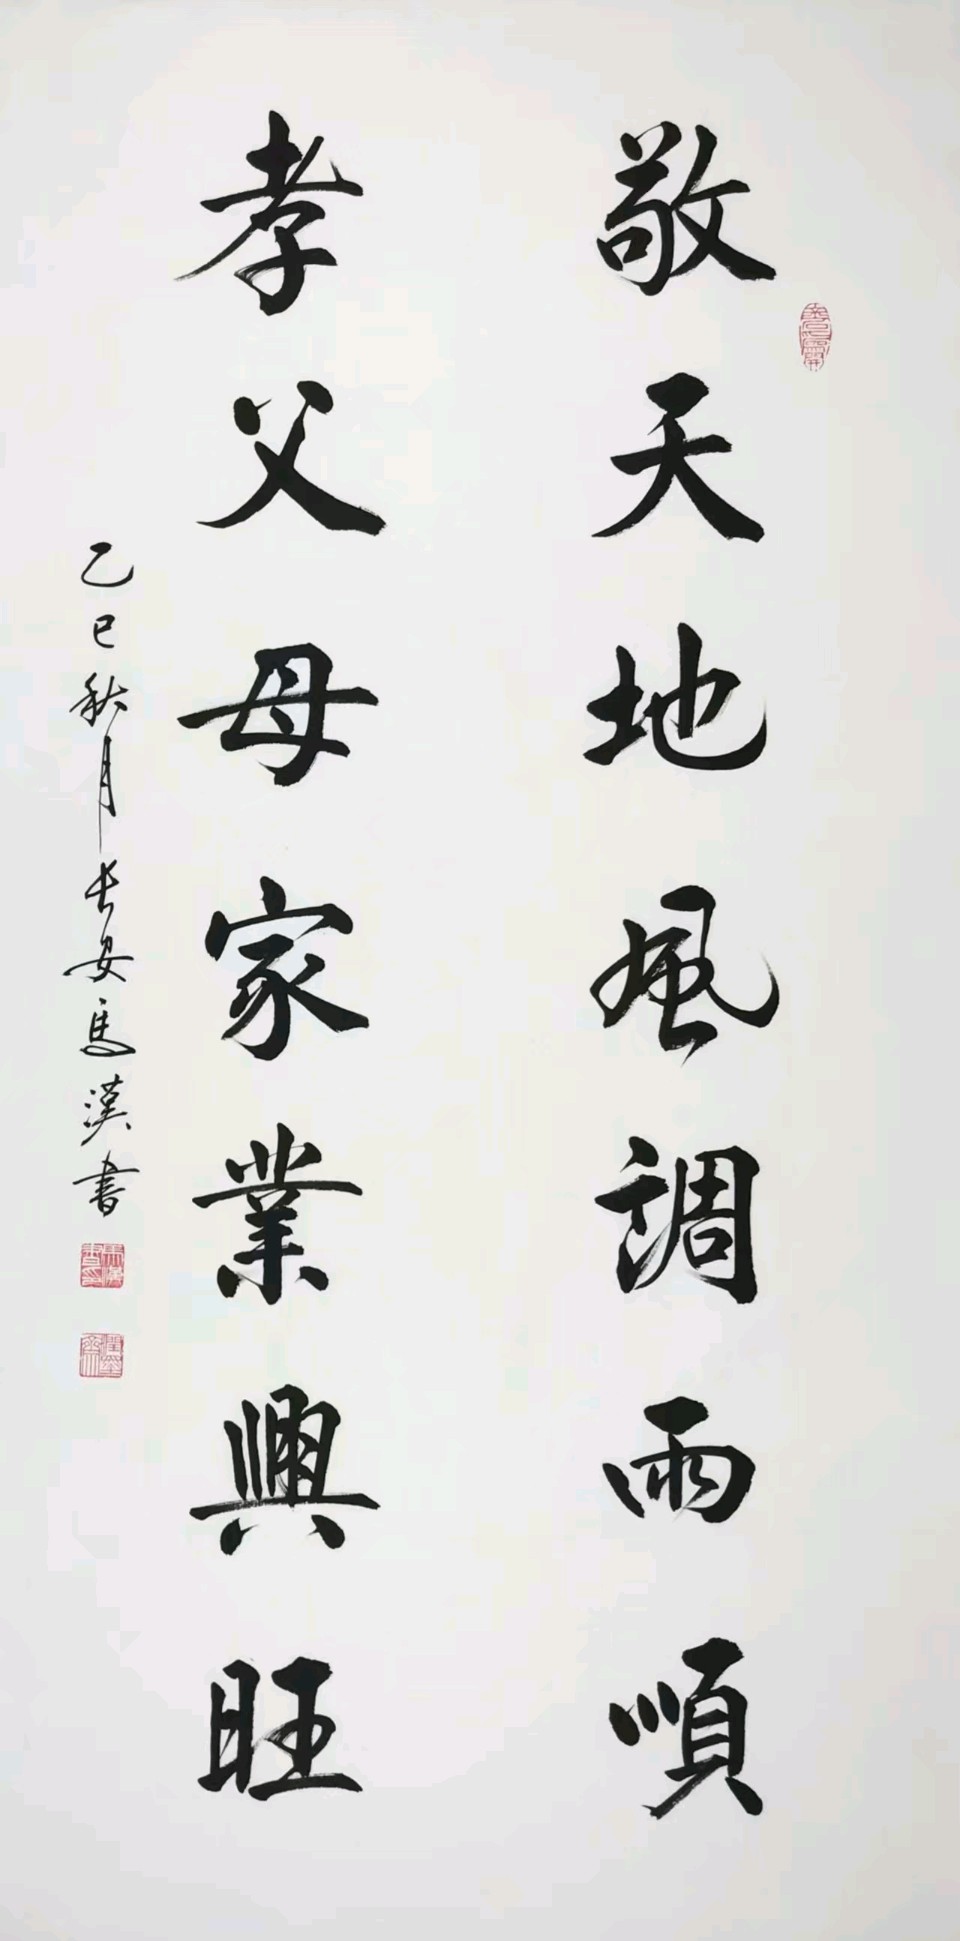 敬天地風調雨順
孝父母家業興旺
乙巳秋月長安馬漢書